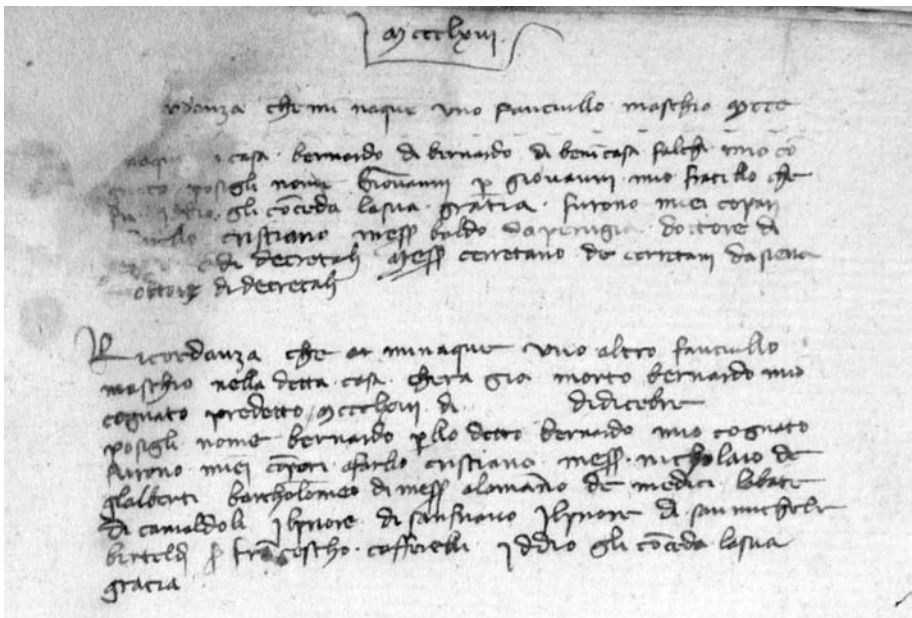 mccclxvi.
rdanza che mi naque uno fanciullo maschio mccc
naque casa. bernardo di bernardo di benicasa falch mio co
posigli nome Giovanni p giovanni mio fratello che
Idio gli cõceda la sua gratia. furono miei copari
cristiano mess baldo da perugia dottore di
e di decretali mess cerretano de cerretani da siena
dottore di decretali
Ricordanza che ar minaque uno altro fanciullo
maschio nella detta casa. chera gia morto bernardo mio
cognato predetto mccclxvi di didicebre
posigli nome bernardo pllo detto bernardo mio cognato
furono miei cõpari afarllo cristiano mess. nicholaio de
glalberti bartholomeo di mess alamãno de medici labate
di camaldoli Ilpriore di san Ilpriore di san michele
berteldi frãcescho. caffereelli Iddio gli cõceda la sua
gratia